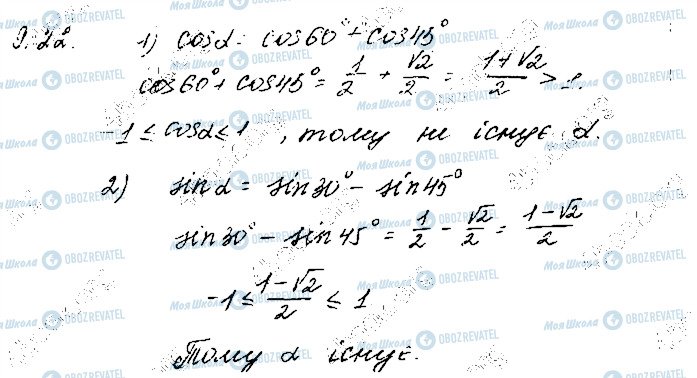 9.22. 1) cosα = cos60° + cos45°
cos60° + cos45° = 1/2 + √2/2 = (1+√2)/2 > 1
-1 ≤ cosα ≤ 1, тому не існує α.
2) sinα = sin30° - sin45°
sin30° - sin45° = 1/2 - √2/2 = (1-√2)/2
-1 ≤ (1-√2)/2 ≤ 1
Тому α існує.